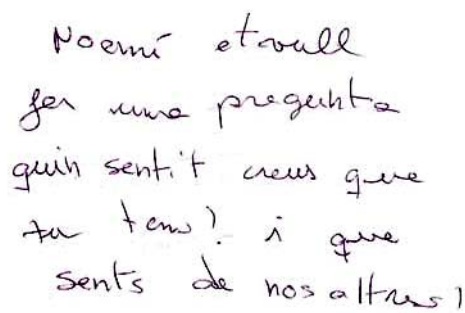 Noemí et vull
fer una pregunta
quin sentit creus que
tu tens? i que
sents de nosaltres?